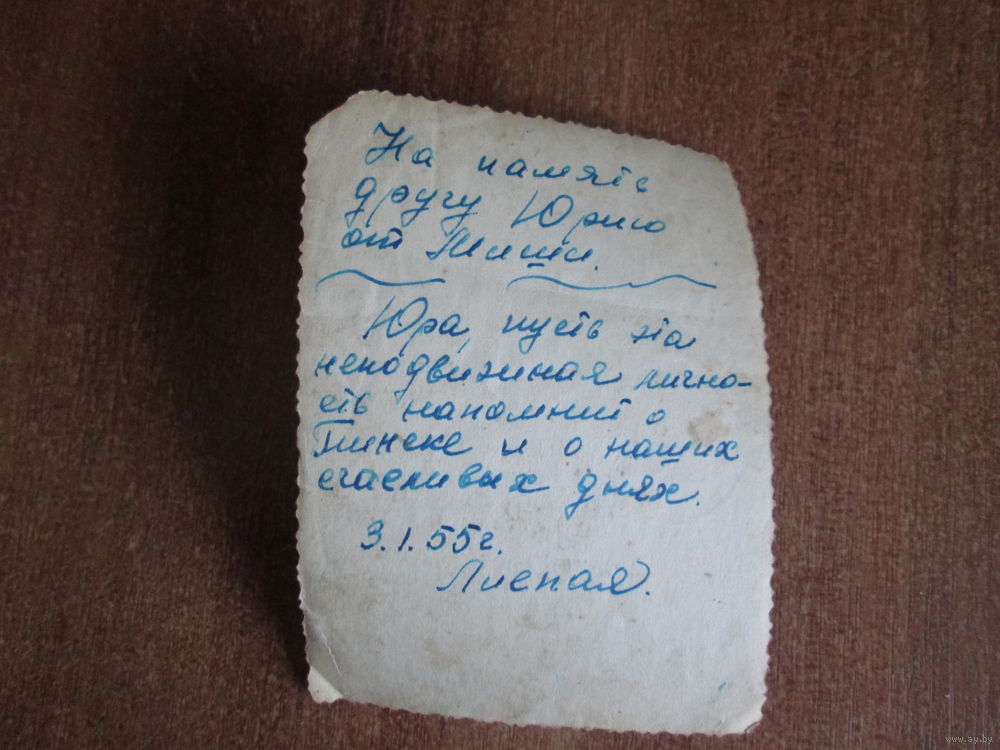 На память
другу Юрию
от Миши.
Юра, пусть эта
неподвижная лично-
сть напомнит о
Пинске и о наших
счастливых днях.
3.1.55г.
www.ay.by